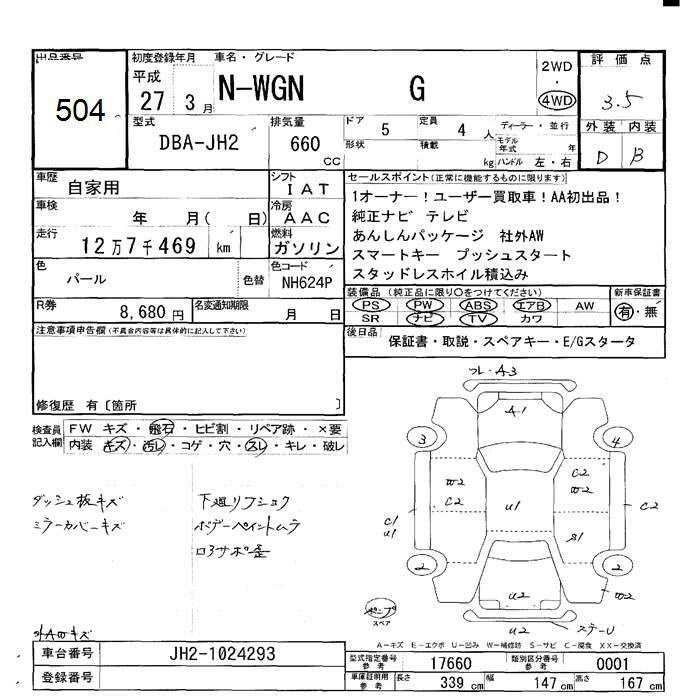 出品番号 504
初度登録年月 平成 27 3月
車名・グレード N-WGN G
2WD ・ 4WD
評価点 3.5
外装 内装
D B
型式 DBA-JH2
排気量 660 CC
ドア 5
定員 4 人
ディーラー・並行
形状
積載 kg
モデル年式 年
ハンドル 左・右
車歴 自家用
シフト IAT
車検 年 月( 日)
冷房 AAC
走行 12万7千469 km
燃料 ガソリン
色 パール
色替
色コード NH624P
R券 8,680円
名変通知期限 月 日
セールスポイント(正常に機能するものに限ります)
1オーナー!ユーザー買取車!AA初出品!
純正ナビ テレビ
あんしんパッケージ 社外AW
スマートキー プッシュスタート
スタッドレスホイル積込み
装備品(純正品に限り○をつけてください)
新車保証書
PS PW ABS エアB AW
SR ナビ TV カワ
有・無
後日品 保証書・取説・スペアキー・E/Gスタータ
注意事項申告欄(不具合内容等は具体的に記入して下さい)
修復歴 有〔箇所 〕
検査員記入欄
FW キズ・飛石・ヒビ割・リペア跡・×要
内装 キズ・汚レ・コゲ・穴・スレ・キレ・破レ
ダッシュ板キズ
ミラーカバーキズ
下廻リフショク
ボデーペイントムラ
ロアサポ歪
外AWキズ
フレ・A3
A1
3 4
W2 C2
C2 W2
U1
C1 C2
U1
S1
2 2
U2 W2
ポンプ
スペア
U2 ステーU
A-キズ E-エクボ U-凹み W-補修跡 S-サビ C-腐食 XX-交換済
車台番号 JH2-1024293
登録番号
型式指定番号 参考 17660
類別区分番号 参考 0001
車庫証明用 参考 長さ 339 cm 幅 147 cm 高さ 167 cm